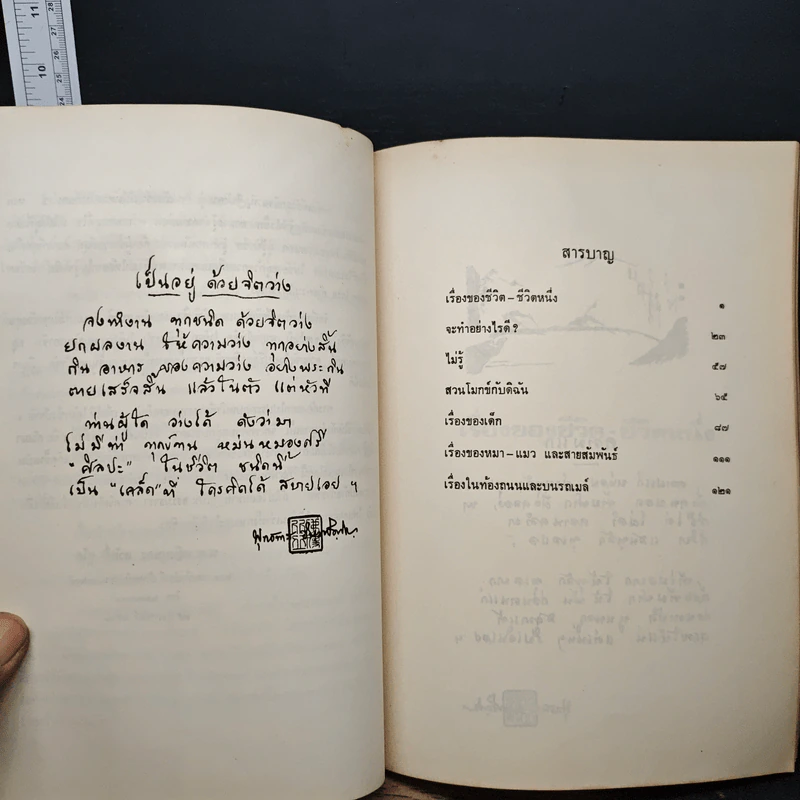 เป็นอยู่ ด้วยจิตว่าง
จงทำงาน ทุกชนิด ด้วยจิตว่าง
ยกผลงาน ให้ความว่าง ทุกอย่างสิ้น
กินอาหาร ของความว่าง อย่างพระกิน
ตายเสร็จสิ้น แล้วในตัว แต่หัวที
ท่านผู้ใด ว่างได้ ดังว่ามา
ไม่มีท่า ทุกข์ทน หม่นหมองศรี
"ศิลปะ" ในชีวิต ชนิดนี้
เป็น "เคล็ด" ที่ ใครคิดได้ สบายเอย ฯ
สารบาญ
เรื่องของชีวิต – ชีวิตหนึ่ง ๑
จะทำอย่างไรดี? ๒๓
ไม่รู้ ๕๗
สวนโมกข์กับดิฉัน ๖๕
เรื่องของเด็ก ๘๗
เรื่องของหมา – แมว และสายสัมพันธ์ ๑๑๑
เรื่องในท้องถนนและบนรถเมล์ ๑๒๑
11
10
27
26
25
24